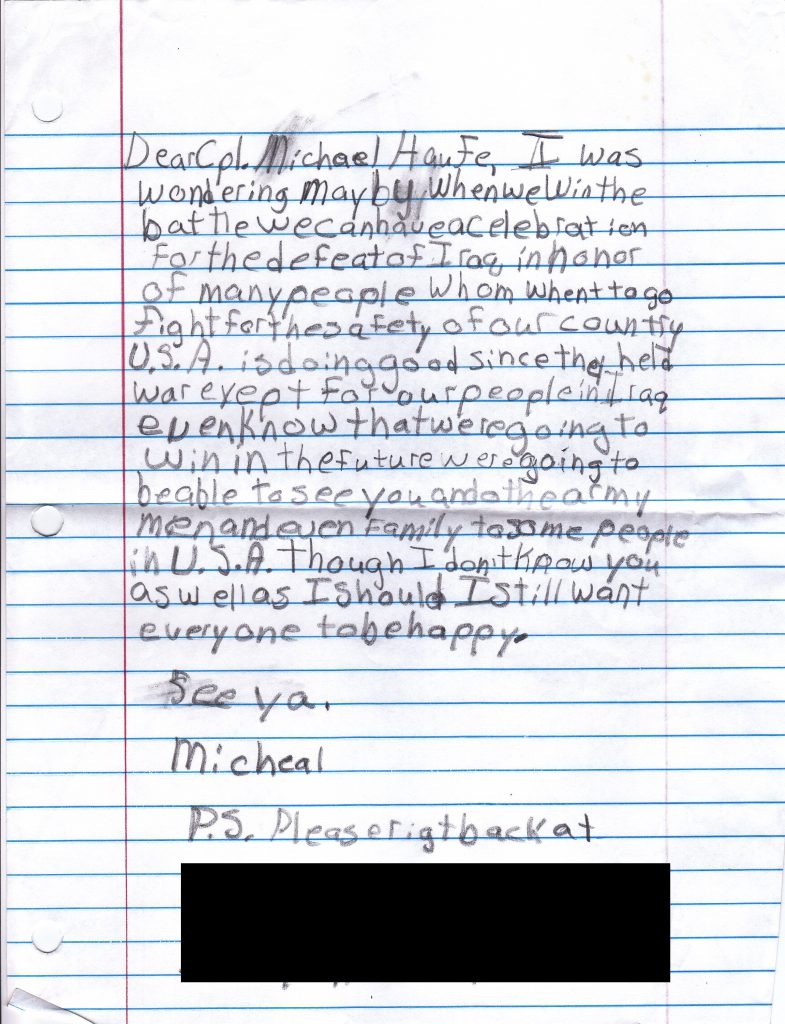 Dear Cpl. Michael Haufe, I was
wondering mayby when we win the
battle we can have a celebration
for the defeat of Iraq in honor
of many people whom when t to go
fight for the safety of our country
U.S.A. is doing good since they held
war exept for our people in Iraq
even know that were going to
win in the future were going to
be able to see you and othe army
men and even family to some people
in U.S.A. Though I don't know you
as well as I should I still want
everyone to be happy.
See ya.
Micheal
P.S. Please rigt back at